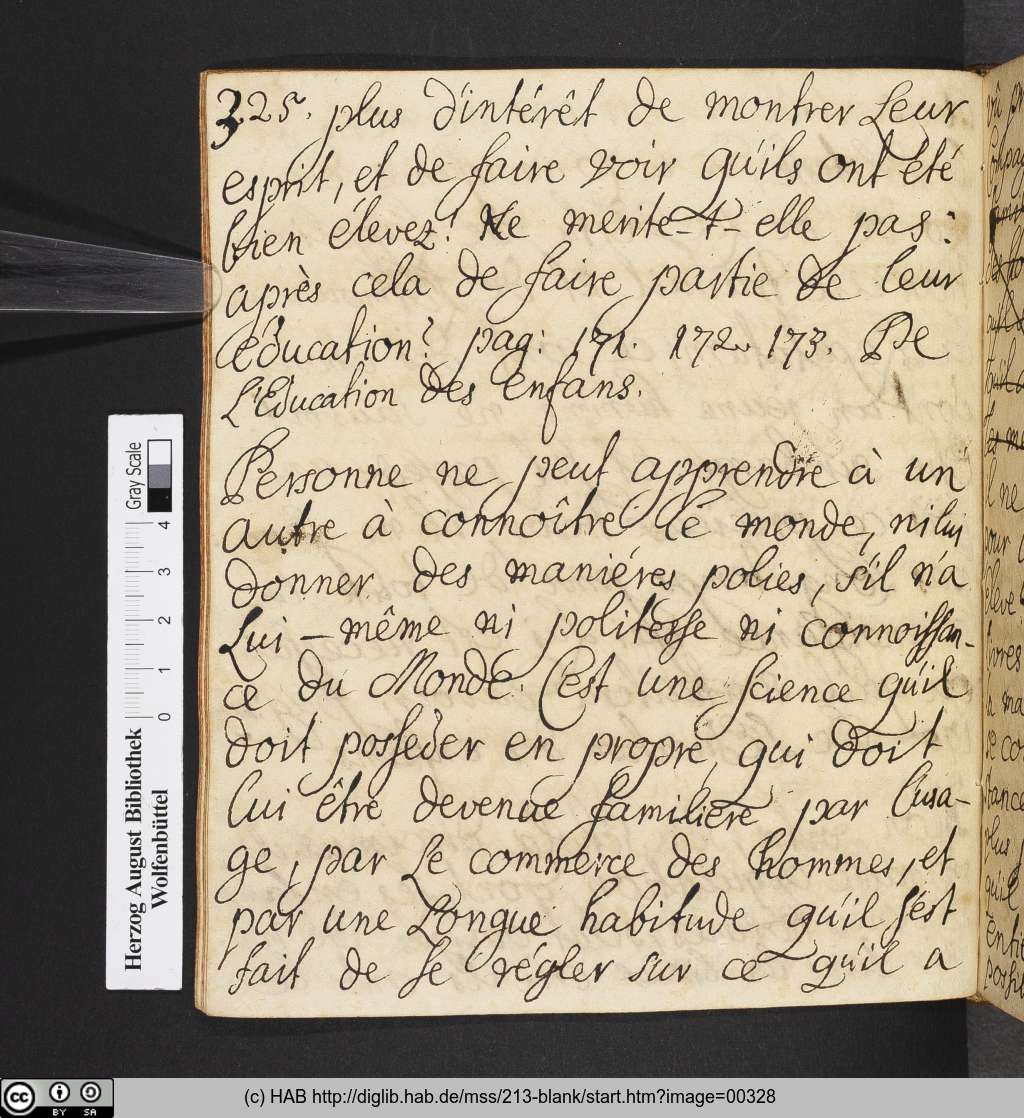 325. plus d'intérêt de montrer Leur
esprit, et de faire voir qu'ils ont été
bien élevez! Ne merite-t-elle pas:
après cela de faire partie de leur
éducation? pag: 171. 172. 173. De
L'Education des enfans.
Personne ne peut apprendre à un
autre à connoître le monde, ni lui
donner des maniéres polies, s'il n'a
Lui-même ni politesse ni connoissan-
ce du Monde. C'est une science qu'il
doit posséder en propre, qui doit
lui être devenue familiere par l'usa-
ge, par Le commerce des hommes, et
par une Longue habitude qu'il s'est
fait de se régler sur ce qu'il a
Gray Scale
4
3
2
1
0
Herzog August Bibliothek
Wolfenbüttel
cc BY SA
(c) HAB http://diglib.hab.de/mss/213-blank/start.htm?image=00328